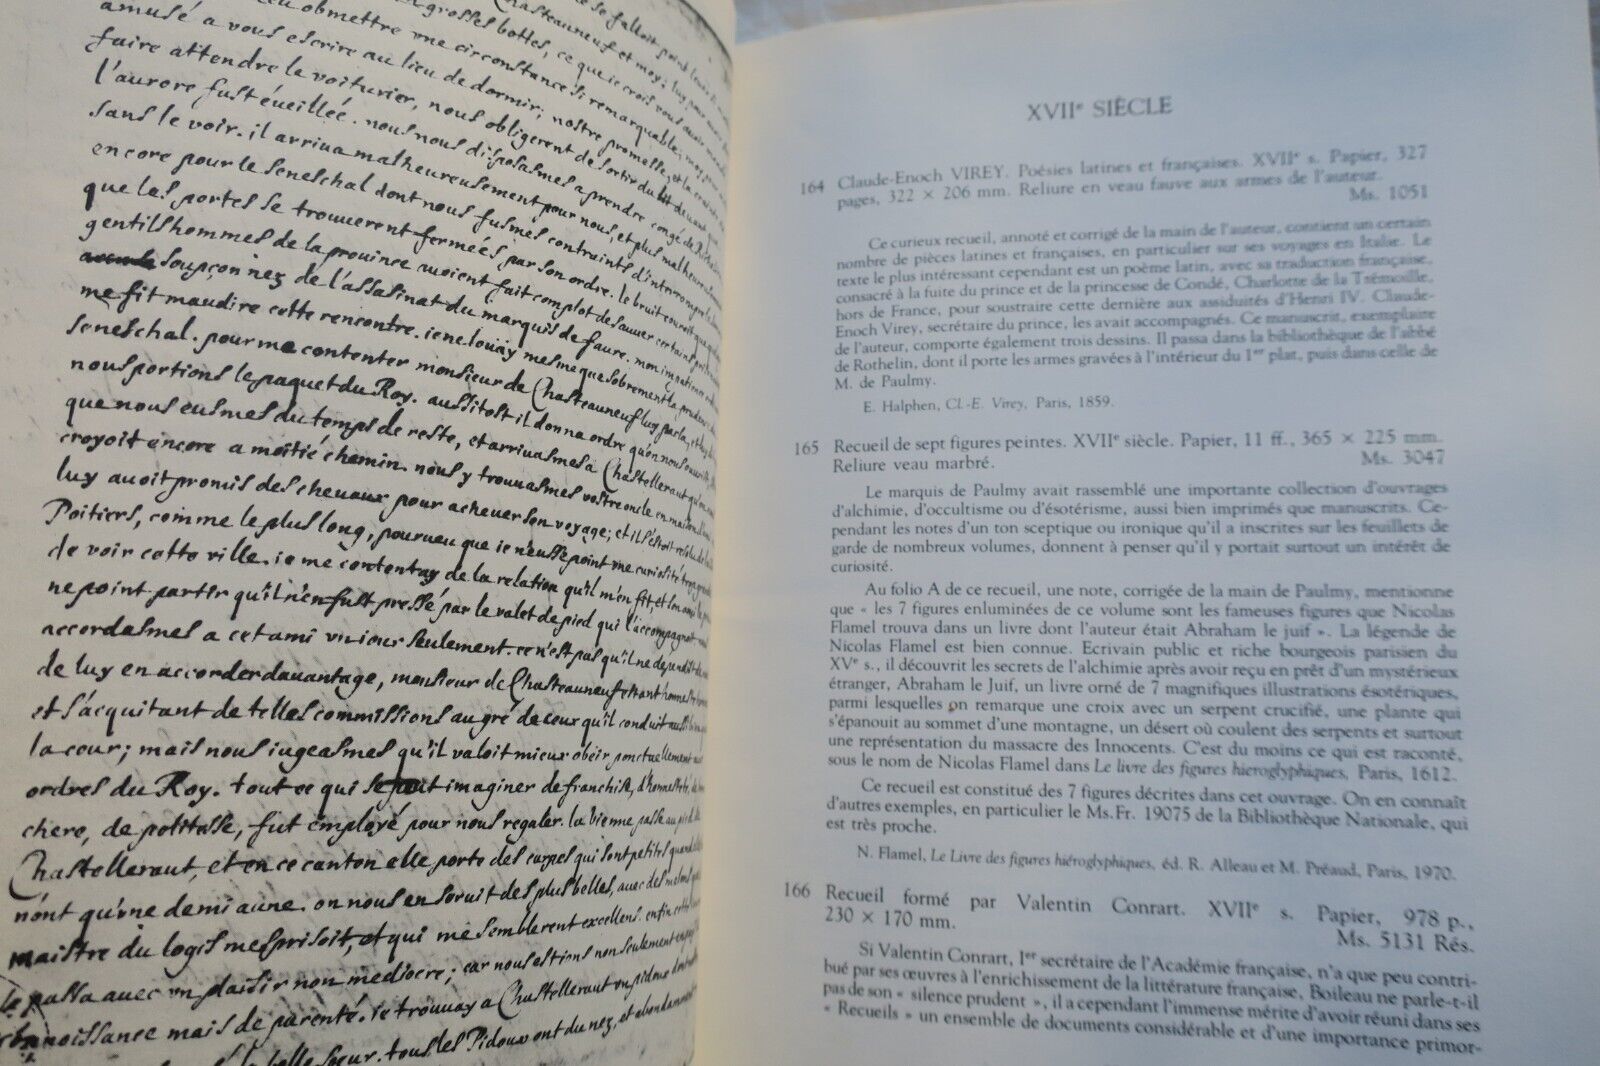 se falloit point
Chasteauneuf et moy; luy
grosses bottes, ce que ie crois vous auoir
obmettre vne circonstance si remarquable,
amusé a vous escrire au lieu de dormir; nostre promesse, et la
faire attendre le voiturier, nous obligerent de sortir du lit deuant que
l'aurore fust éueillée. nous nous disposasmes a prendre congé de
sans le voir. il arriua malheureusement pour nous, et plus malheureusement
encore pour le seneschal dont nous fusmes contraints d'interrompre le
que les portes se trouuerent fermées par son ordre. le bruit couroit que
gentilshommes de la prouince auoient fait complot de sauuer certains
soupçonnez de l'assasinat du marquis de faure. mon impatience
me fit maudire cette rencontre. ie ne louäy mesme que sobrement la prudence
seneschal. pour me contenter monsieur de Chasteauneuf luy parla, et
nous portions le paquet du Roy. aussitost il donna ordre qu'on nous ouurist,
que nous eusmes du temps de reste, et arriuasmes a Chastelleraut qu'on
croyoit encore a moitié chemin. nous y trouuasmes vostre oncle en maison
luy auoit promis des cheuaux pour acheuer son voyage; et il s'estoit resolu
Poitiers, comme le plus long, pourueu que ie n'eusse point vne curiosité trop grande
de voir cette ville. ie me contentay de la relation qu'il m'en fit, et son ami
ne point partir qu'il n'en fust pressé par le valet de pied qui l'accompagnoit.
accordasmes a cet ami vn iour seulement. ce n'est pas qu'il ne dependist de
de luy en accorder dauantage, monsieur de Chasteauneuf estant honneste
et s'acquitant de telles commissions au gré de ceux qu'il conduit aussi
la cour; mais nous iugeasmes qu'il valoit mieux obeir ponctuellement aux
ordres du Roy. tout ce qui se peut imaginer de franchise, d'honnesteté, de
chere, de politesse, fut employé pour nous regaler. la Vienne passe au pied de
Chastelleraut, et en ce canton elle porte des carpes qui sont petites quand elles
n'ont qu'vne demi aune. on nous en seruit des plus belles, auec des melons que
maistre du logis mesprisoit, et qui me semblerent excellens. enfin cette
se passa auec vn plaisir non mediocre; car nous estions non seulement en pays
connoissance mais de parenté. ie trouuay a Chastelleraut vn Pidoux dont
la belle sœur. tous les Pidoux ont du nez, et abondamment
XVIIe SIÈCLE
164 Claude-Enoch VIREY. Poésies latines et françaises. XVIIe s. Papier, 327
pages, 322 × 206 mm. Reliure en veau fauve aux armes de l'auteur.
Ms. 1051
Ce curieux recueil, annoté et corrigé de la main de l'auteur, contient un certain
nombre de pièces latines et françaises, en particulier sur ses voyages en Italie. Le
texte le plus intéressant cependant est un poème latin, avec sa traduction française,
consacré à la fuite du prince et de la princesse de Condé, Charlotte de la Trémoille,
hors de France, pour soustraire cette dernière aux assiduités d'Henri IV. Claude-
Enoch Virey, secrétaire du prince, les avait accompagnés. Ce manuscrit, exemplaire
de l'auteur, comporte également trois dessins. Il passa dans la bibliothèque de l'abbé
de Rothelin, dont il porte les armes gravées à l'intérieur du 1er plat, puis dans celle de
M. de Paulmy.
E. Halphen, Cl.-E. Virey, Paris, 1859.
165 Recueil de sept figures peintes. XVIIe siècle. Papier, 11 ff., 365 × 225 mm.
Reliure veau marbré.
Ms. 3047
Le marquis de Paulmy avait rassemblé une importante collection d'ouvrages
d'alchimie, d'occultisme ou d'ésotérisme, aussi bien imprimés que manuscrits. Ce-
pendant les notes d'un ton sceptique ou ironique qu'il a inscrites sur les feuillets de
garde de nombreux volumes, donnent à penser qu'il y portait surtout un intérêt de
curiosité.
Au folio A de ce recueil, une note, corrigée de la main de Paulmy, mentionne
que « les 7 figures enluminées de ce volume sont les fameuses figures que Nicolas
Flamel trouva dans un livre dont l'auteur était Abraham le juif ». La légende de
Nicolas Flamel est bien connue. Ecrivain public et riche bourgeois parisien du
XVe s., il découvrit les secrets de l'alchimie après avoir reçu en prêt d'un mystérieux
étranger, Abraham le Juif, un livre orné de 7 magnifiques illustrations ésotériques,
parmi lesquelles on remarque une croix avec un serpent crucifié, une plante qui
s'épanouit au sommet d'une montagne, un désert où coulent des serpents et surtout
une représentation du massacre des Innocents. C'est du moins ce qui est raconté,
sous le nom de Nicolas Flamel dans Le livre des figures hieroglyphiques, Paris, 1612.
Ce recueil est constitué des 7 figures décrites dans cet ouvrage. On en connaît
d'autres exemples, en particulier le Ms.Fr. 19075 de la Bibliothèque Nationale, qui
est très proche.
N. Flamel, Le Livre des figures hiéroglyphiques, éd. R. Alleau et M. Préaud, Paris, 1970.
166 Recueil formé par Valentin Conrart. XVIIe s. Papier, 978 p.,
230 × 170 mm.
Ms. 5131 Rés.
Si Valentin Conrart, 1er secrétaire de l'Académie française, n'a que peu contri-
bué par ses œuvres à l'enrichissement de la littérature française, Boileau ne parle-t-il
pas de son « silence prudent », il a cependant l'immense mérite d'avoir réuni dans ses
« Recueils » un ensemble de documents considérable et d'une importance primor-